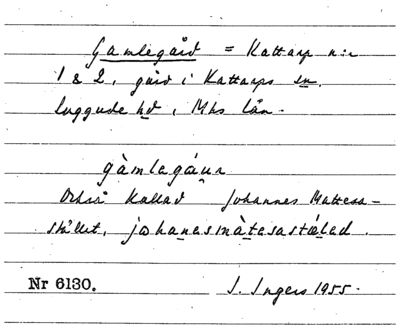 Gamlegård = Kattarp n:r
1 & 2, gård i Kattarps sn.
Luggude hd, Mhs län.
gàmlagáʀn
Också kallad Johannes Mattesa-
stället, johanesmàtesastǽled.
Nr 6130. I. Ingers 1955.